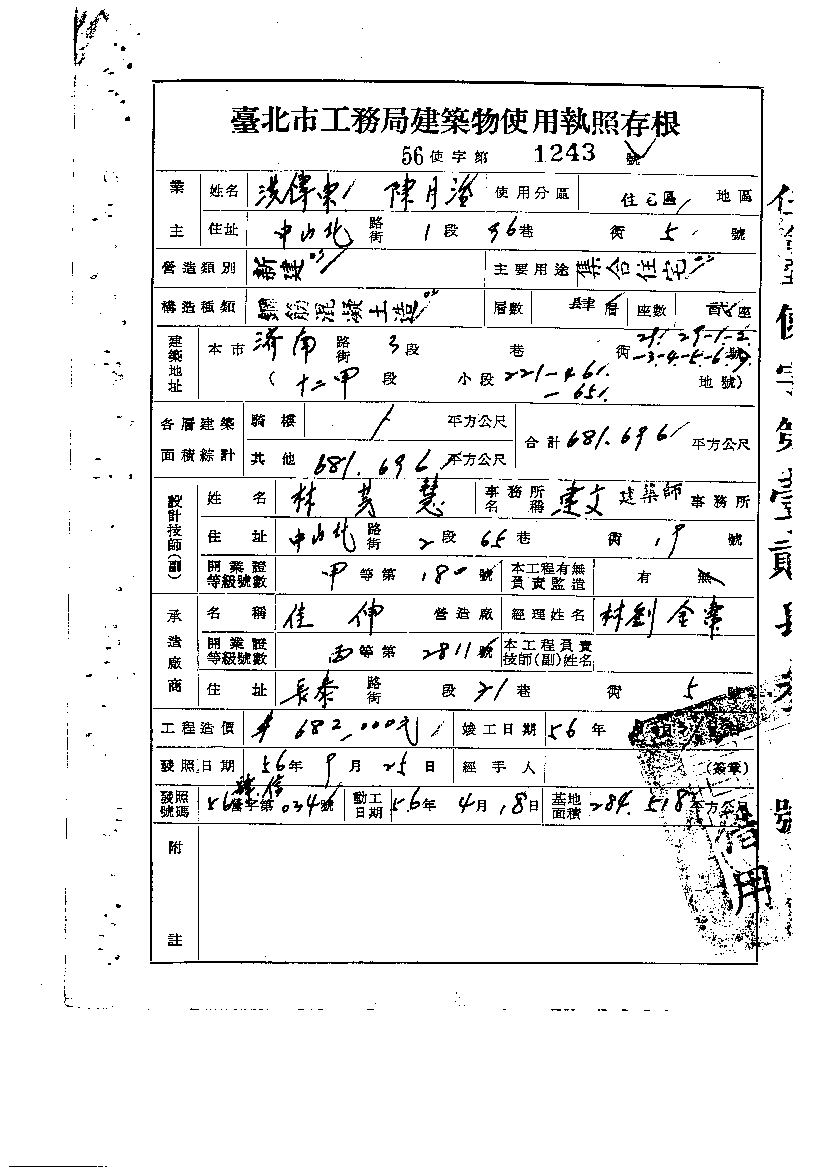 臺北市工務局建築物使用執照存根
56使字第 1243 號
業主 姓名 陳月 使用分區 住宅區 地區
住址 中山北 路街 1段 96巷 衖 5 號
營造類別 新建 主要用途 集合住宅
構造種類 鋼筋混凝土造 層數 肆層 座數 貳座
建築地址 本市 濟南 路街 3段 巷 衖 29. 29-1-2. -3-4-5-6-9. 號
(十二甲 段 小段 221-461. -651. 地號)
各層建築面積綜計 騎樓 / 平方公尺 合計 681.696 平方公尺
其他 681.696 平方公尺
設計技師(副) 姓名 林慧 事務所名稱 建文建築師事務所
住址 中山北 路街 2段 65巷 衖 19 號
開業證等級號數 甲等第 180 號 本工程有無負責監造 有 無
承造廠商 名稱 佳伸 營造廠 經理姓名 林劉金
開業證等級號數 丙等第 2811 號 本工程負責技師(副)姓名
住址 長泰 路街 段 21巷 衖 5 號
工程造價 682,000元 竣工日期 56年
發照日期 56年 9月 25日 經手人 (簽章)
發照號碼 56 字第 0346 號 動工日期 56年 4月 18日 基地面積 284.518 平方公尺
附註
借用
使字第壹貳 號